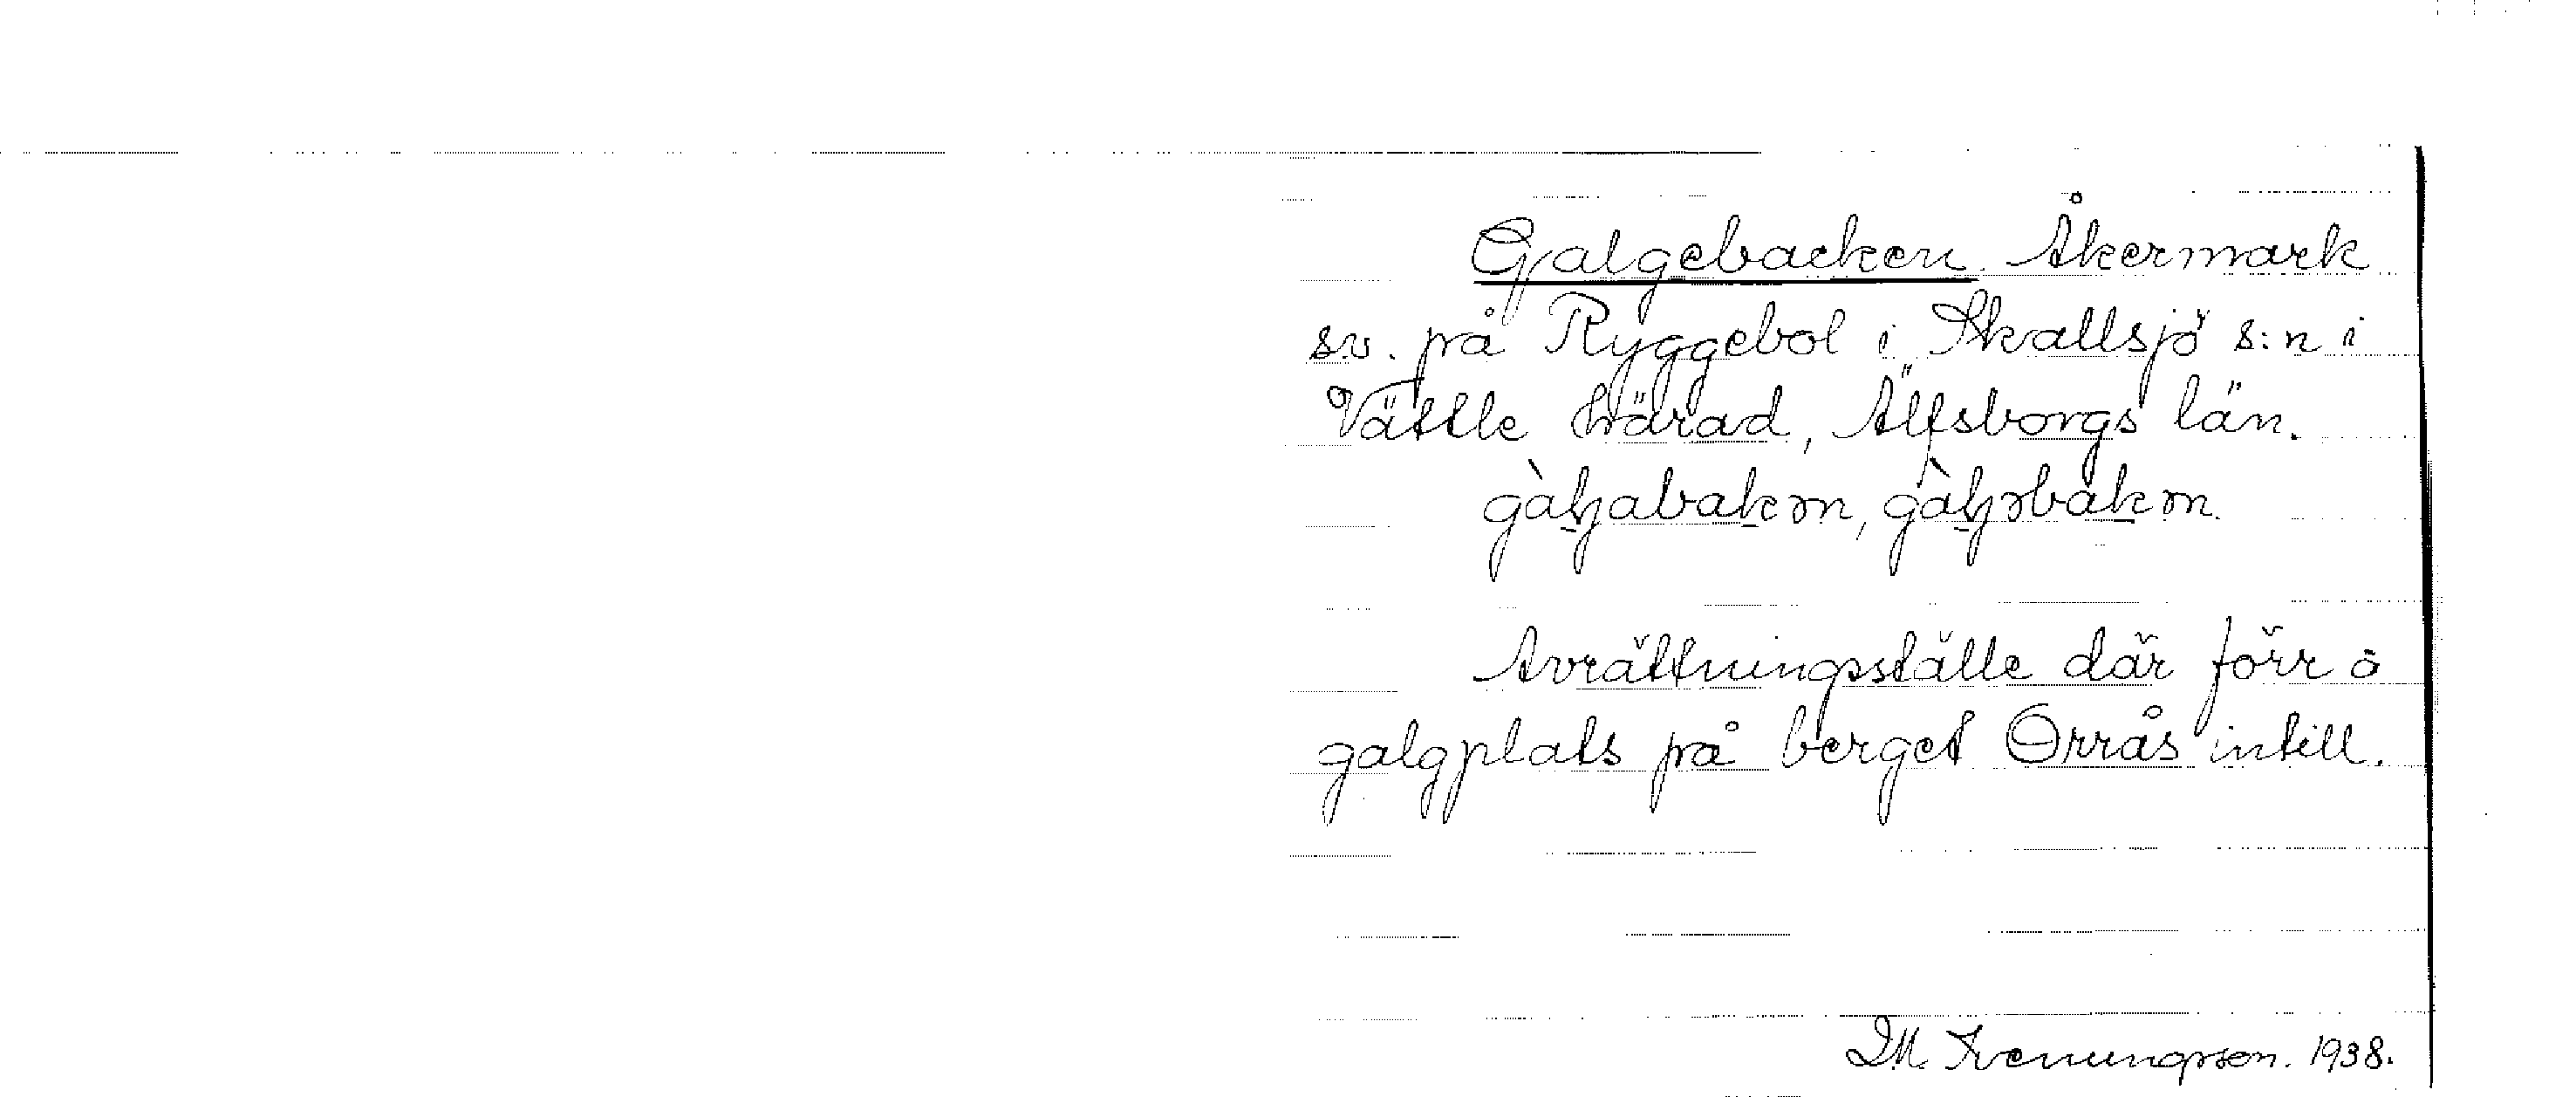 Galgebacken. Åkermark
sv. på Ryggebol i Skallsjö s:n i
Vättle härad, Älfsborgs län.
Avrättningsställe där förr o
galgplats på berget Orrås intill.
D.M. 1938.